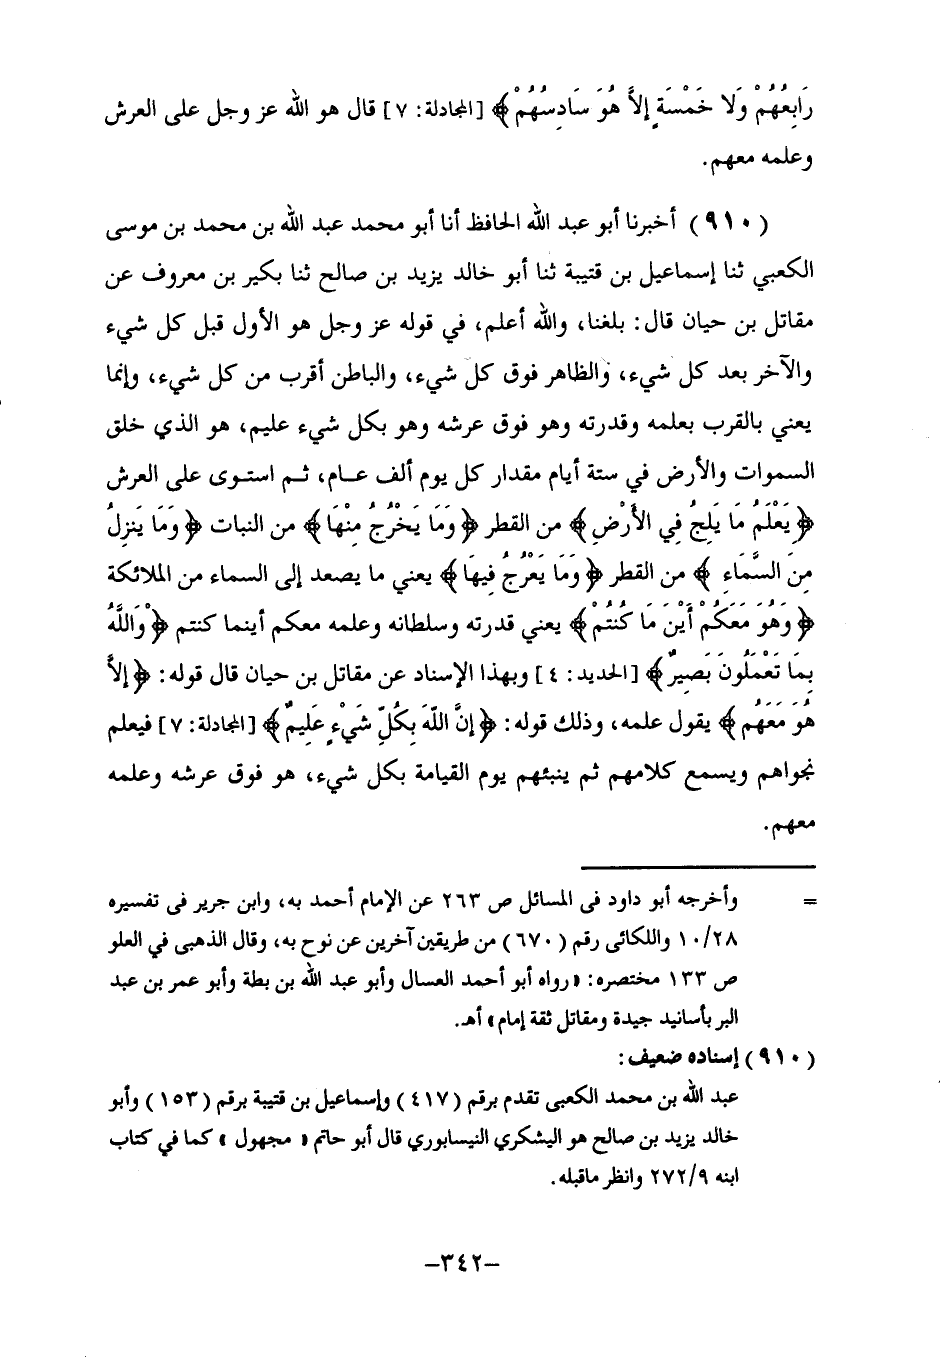 رَابِعُهُمْ وَلا خَمْسَةٍ إِلاَّ هُوَ سَادِسُهُمْ ﴾ [ المجادلة: ٧ ] قال هو الله عز وجل على العرش
وعلمه معهم.
( ٩١٠ ) أخبرنا أبو عبد الله الحافظ أنا أبو محمد عبد الله بن محمد بن موسى
الكعبي ثنا إسماعيل بن قتيبة ثنا أبو خالد يزيد بن صالح ثنا بكير بن معروف عن
مقاتل بن حيان قال: بلغنا، والله أعلم، في قوله عز وجل هو الأول قبل كل شيء
والآخر بعد كل شيء، والظاهر فوق كل شيء، والباطن أقرب من كل شيء، وإنما
يعني بالقرب بعلمه وقدرته وهو فوق عرشه وهو بكل شيء عليم، هو الذي خلق
السموات والأرض في ستة أيام مقدار كل يوم ألف عـام، ثـم استـوى على العرش
﴿ يَعْلَمُ مَا يَلِجُ فِي الأَرْضِ ﴾ من القطر ﴿ وَمَا يَخْرُجُ مِنْهَا ﴾ من النبات ﴿ وَمَا يَنزِلُ
مِنَ السَّمَاءِ ﴾ من القطر ﴿ وَمَا يَعْرُجُ فِيهَا ﴾ يعني ما يصعد إلى السماء من الملائكة
﴿ وَهُوَ مَعَكُمْ أَيْنَ مَا كُنتُمْ ﴾ يعني قدرته وسلطانه وعلمه معكم أينما كنتم ﴿ وَاللَّهُ
بِمَا تَعْمَلُونَ بَصِيرٌ ﴾ [ الحديد: ٤ ] وبهذا الإسناد عن مقاتل بن حيان قال قوله: ﴿ إِلاَّ
هُوَ مَعَهُم ﴾ يقول علمه، وذلك قوله: ﴿ إِنَّ اللَّهَ بِكُلِّ شَيْءٍ عَلِيمٌ ﴾ [ المجادلة: ٧ ] فيعلم
نجواهم ويسمع كلامهم ثم ينبئهم يوم القيامة بكل شيء، هو فوق عرشه وعلمه
معهم.
= وأخرجه أبو داود فى المسائل ص ٢٦٣ عن الإمام أحمد به، وابن جرير فى تفسيره
١٠/٢٨ واللكائى رقم ( ٦٧٠ ) من طريقين آخرين عن نوح به، وقال الذهبى في العلو
ص ١٣٣ مختصره: « رواه أبو أحمد العسال وأبو عبد الله بن بطة وأبو عمر بن عبد
البر بأسانيد جيدة ومقاتل ثقة إمام » أهـ.
( ٩١٠ ) إسناده ضعيف :
عبد الله بن محمد الكعبى تقدم برقم ( ٤١٧ ) وإسماعيل بن قتيبة برقم ( ١٥٣ ) وأبو
خالد يزيد بن صالح هو اليشكري النيسابوري قال أبو حاتم « مجهول » كما في كتاب
ابنه ٢٧٢/٩ وانظر ماقبله.
-٣٤٢-